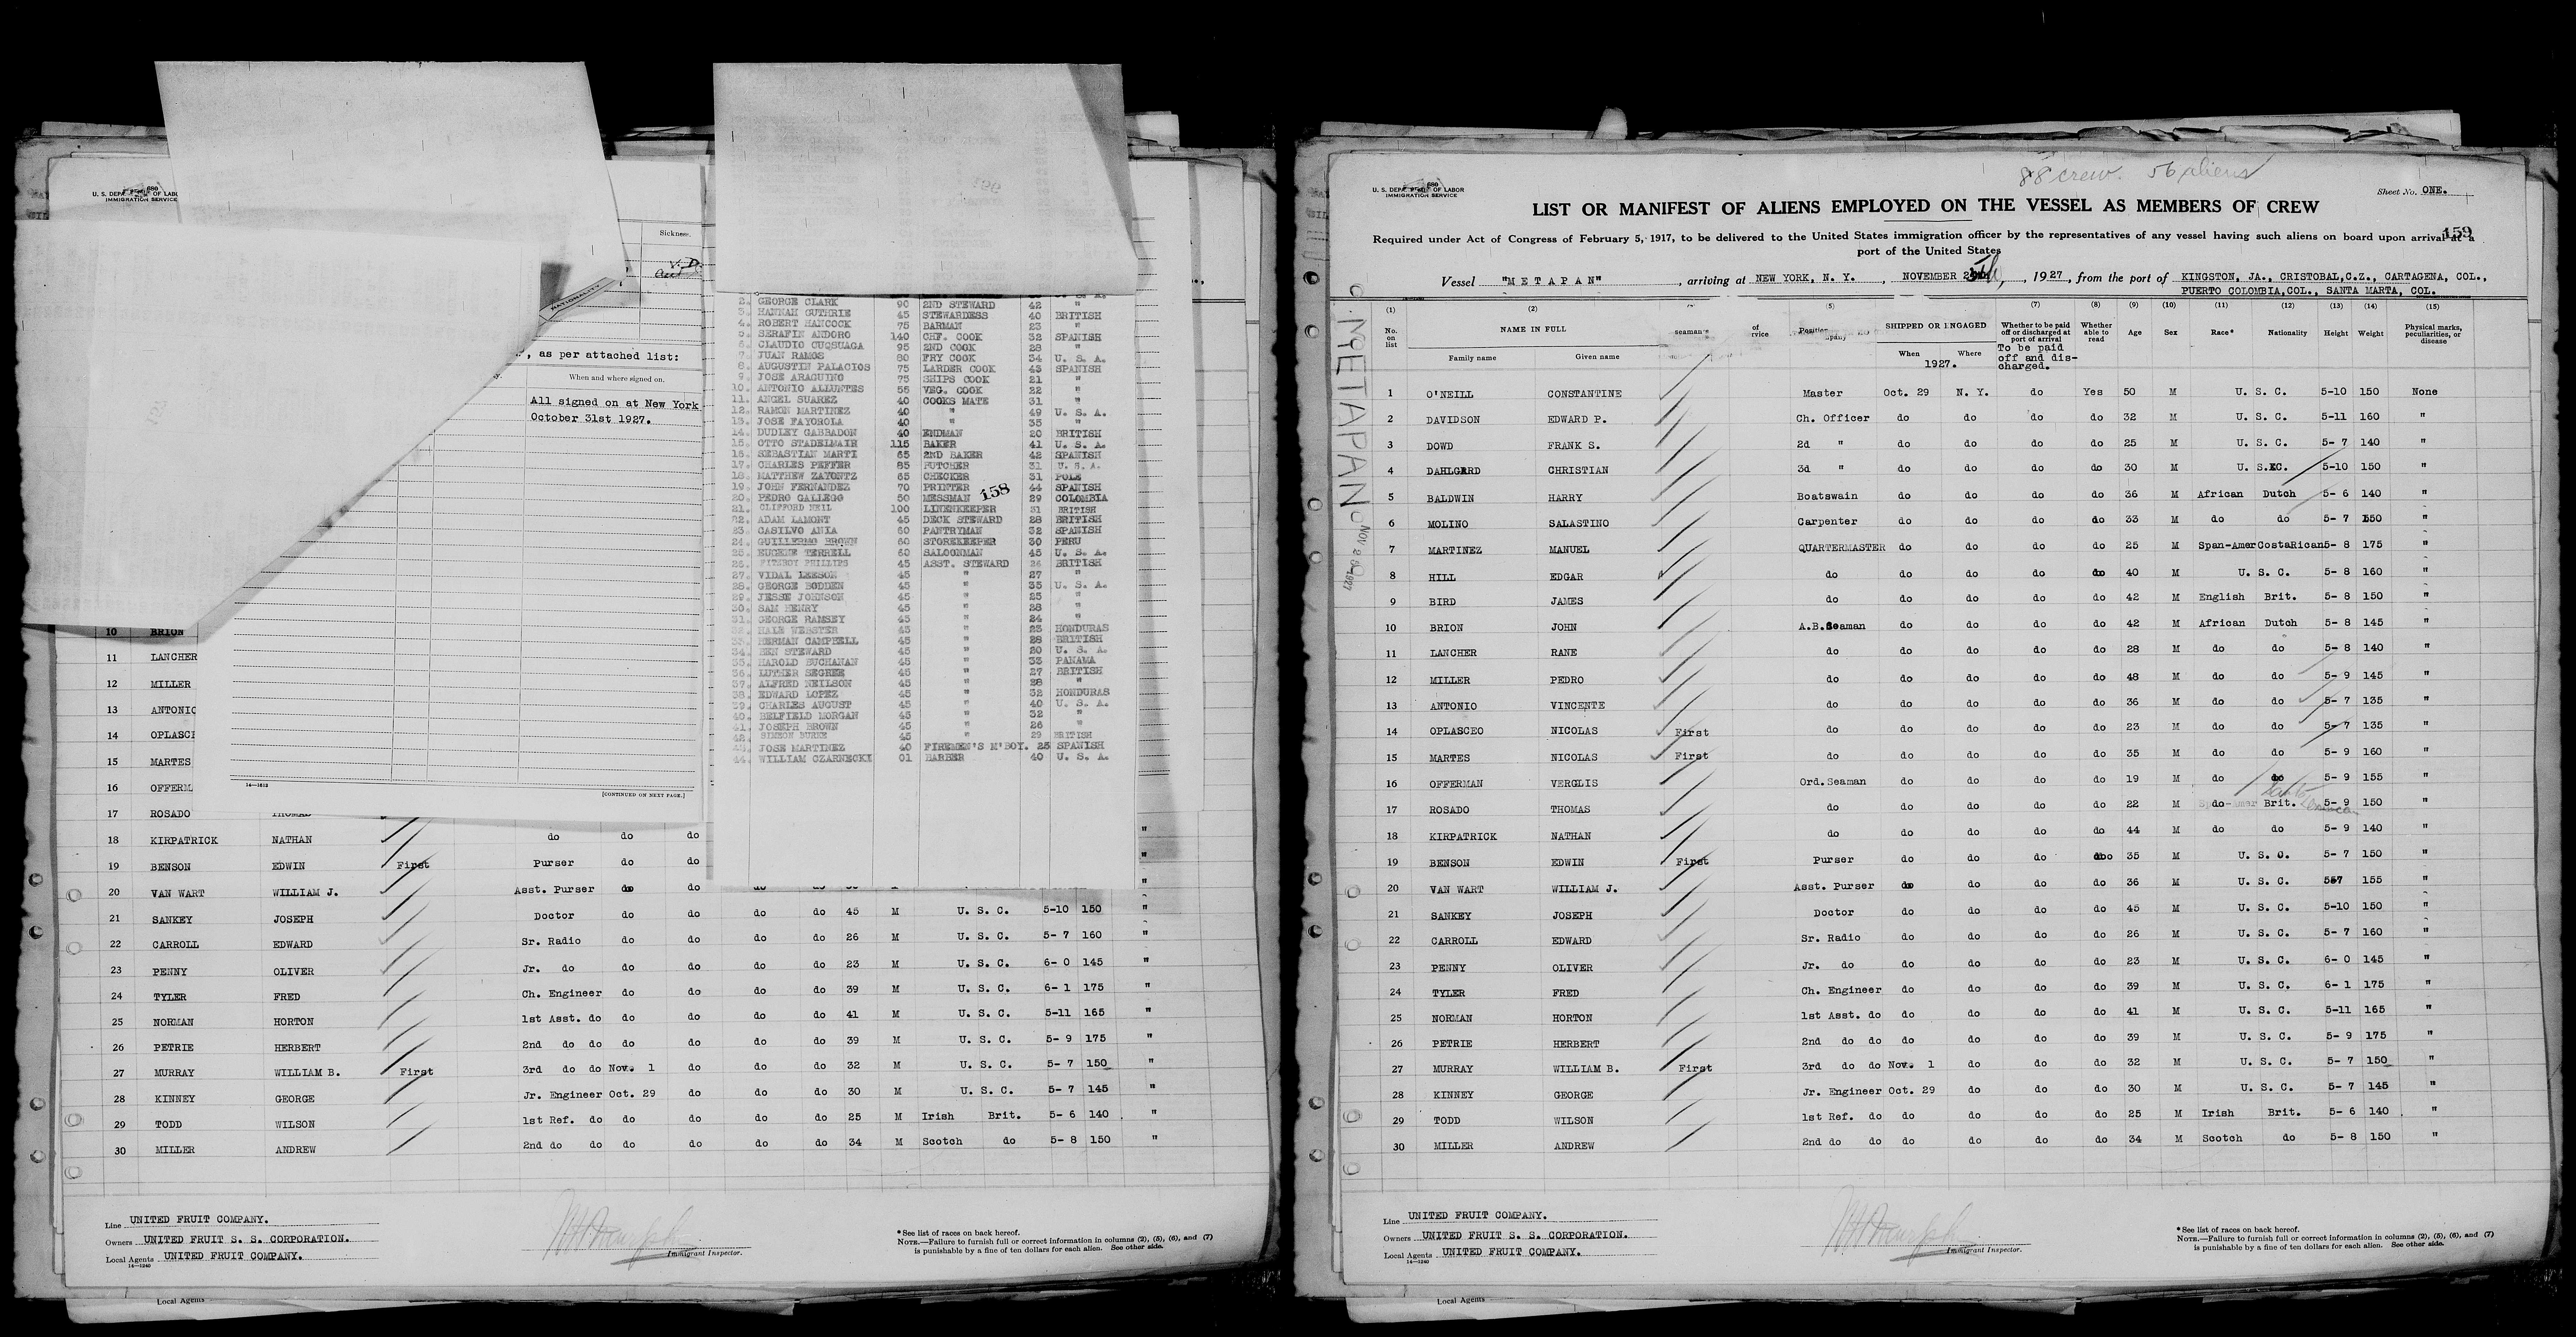 U. S. DEPARTMENT OF LABOR
IMMIGRATION SERVICE
Sickness.
NATIONALITY
, as per attached list:
When and where signed on.
All signed on at New York
October 31st 1927.
14—1512
[CONTINUED ON NEXT PAGE.]
2. GEORGE CLARK 90 2ND STEWARD 42 "
3. HANNAH GUTHRIE 45 STEWARDESS 40 BRITISH
4. ROBERT HANCOCK 75 BARMAN 23 "
5. SERAFIN ANDORO 140 CHF. COOK 32 SPANISH
6. CLAUDIO CUQSUAGA 95 2ND COOK 28 "
7. JUAN RAMOS 80 FRY COOK 34 U. S. A.
8. AUGUSTIN PALACIOS 75 LARDER COOK 43 SPANISH
9. JOSE ARAGUINO 75 SHIPS COOK 21 "
10. ANTONIO ALLUNTES 55 VEG. COOK 22 "
11. ANGEL SUAREZ 40 COOKS MATE 31 "
12. RAMON MARTINEZ 40 " 49 U. S. A.
13. JOSE FAYOROLA 40 " 35 "
14. DUDLEY GABRADON 40 ENDMAN 20 BRITISH
15. OTTO STADELMAIR 115 BAKER 41 U. S. A.
16. SEBASTIAN MARTI 65 2ND BAKER 42 SPANISH
17. CHARLES PEFFER 85 BUTCHER 31 U. S. A.
18. MATTHEW ZAYONTZ 65 CHECKER 31 POLE
19. JOHN FERNANDEZ 70 PRINTER 44 SPANISH
20. PEDRO GALLEGO 50 MESSMAN 158 29 COLOMBIA
21. CLIFFORD NEIL 100 LINENKEEPER 31 BRITISH
22. ADAM LAMONT 45 DECK STEWARD 28 BRITISH
23. CASILVO ANIA 60 PANTRYMAN 32 SPANISH
24. GUILLERMO BROWN 60 STOREKEEPER 30 PERU
25. EUGENE TERRELL 60 SALOONMAN 45 U. S. A.
26. FITZROY PHILLIPS 45 ASST. STEWARD 26 BRITISH
27. VIDAL LEESON 45 " 27 "
28. GEORGE BODDEN 45 " 35 U. S. A.
29. JESSE JOHNSON 45 " 25 "
30. SAM HENRY 45 " 28 "
31. GEORGE RAMSEY 45 " 24 "
32. HALE WEBSTER 45 " 23 HONDURAS
33. HERMAN CAMPBELL 45 " 28 BRITISH
34. BEN STEWARD 45 " 20 U. S. A.
35. HAROLD BUCHANAN 45 " 33 PANAMA
36. LUTHER SEGREE 45 " 27 BRITISH
37. ALFRED NEILSON 45 " 28 "
38. EDWARD LOPEZ 45 " 32 HONDURAS
39. CHARLES AUGUST 45 " 40 U. S. A.
40. BELFIELD MORGAN 45 " 32 "
41. JOSEPH BROWN 45 " 26 "
42. SIMEON BURKE 45 " 29 BRITISH
43. JOSE MARTINEZ 40 FIREMEN'S M'BOY. 25 SPANISH
44. WILLIAM CZARNECKI 01 BARBER 40 U. S. A.
10 BRION
11 LANCHER
12 MILLER
13 ANTONIO
14 OPLASCE
15 MARTES
16 OFFERM
17 ROSADO THOMAS
18 KIRPATRICK NATHAN do do do "
19 BENSON EDWIN First Purser do do "
20 VAN WART WILLIAM J. Asst. Purser do do "
21 SANKEY JOSEPH Doctor do do do do 45 M U. S. C. 5-10 150 "
22 CARROLL EDWARD Sr. Radio do do do do 26 M U. S. C. 5- 7 160 "
23 PENNY OLIVER Jr. do do do do do 23 M U. S. C. 6- 0 145 "
24 TYLER FRED Ch. Engineer do do do do 39 M U. S. C. 6- 1 175 "
25 NORMAN HORTON 1st Asst. do do do do do 41 M U. S. C. 5-11 165 "
26 PETRIE HERBERT 2nd do do do do do do 39 M U. S. C. 5- 9 175 "
27 MURRAY WILLIAM B. First 3rd do do Nov. 1 do do do 32 M U. S. C. 5- 7 150 "
28 KINNEY GEORGE Jr. Engineer Oct. 29 do do do 30 M U. S. C. 5- 7 145 "
29 TODD WILSON 1st Ref. do do do do do 25 M Irish Brit. 5- 6 140 "
30 MILLER ANDREW 2nd do do do do do do 34 M Scotch do 5- 8 150 "
Line UNITED FRUIT COMPANY.
Owners UNITED FRUIT S. S. CORPORATION.
Local Agents UNITED FRUIT COMPANY.
14—1240
Immigrant Inspector.
*See list of races on back hereof.
NOTE.—Failure to furnish full or correct information in columns (2), (5), (6), and (7)
is punishable by a fine of ten dollars for each alien. See other side.
Local Agents
88 crew. 56 aliens
U. S. DEPARTMENT OF LABOR
IMMIGRATION SERVICE
Sheet No. ONE.
LIST OR MANIFEST OF ALIENS EMPLOYED ON THE VESSEL AS MEMBERS OF CREW
159
Required under Act of Congress of February 5, 1917, to be delivered to the United States immigration officer by the representatives of any vessel having such aliens on board upon arrival at a
port of the United States
Vessel "METAPAN", arriving at NEW YORK, N. Y., NOVEMBER 25th, 1927, from the port of KINGSTON, JA., CRISTOBAL,C.Z., CARTAGENA, COL.,
PUERTO COLOMBIA,COL., SANTA MARTA, COL.
METAPAN
(1) (2) (5) (7) (8) (9) (10) (11) (12) (13) (14) (15)
No. on list NAME IN FULL Position SHIPPED OR ENGAGED Whether to be paid off or discharged at port of arrival Whether able to read Age Sex Race* Nationality Height Weight Physical marks, peculiarities, or disease
Family name Given name When Where To be paid off and discharged.
1927.
1 O'NEILL CONSTANTINE Master Oct. 29 N. Y. do Yes 50 M U. S. C. 5-10 150 None
2 DAVIDSON EDWARD P. Ch. Officer do do do do 32 M U. S. C. 5-11 160 "
3 DOWD FRANK S. 2d " do do do do 25 M U. S. C. 5- 7 140 "
4 DAHLGARD CHRISTIAN 3d " do do do do 30 M U. S. C. 5-10 150 "
5 BALDWIN HARRY Boatswain do do do do 36 M African Dutch 5- 6 140 "
6 MOLINO SALASTINO Carpenter do do do do 33 M do do 5- 7 150 "
7 MARTINEZ MANUEL QUARTERMASTER do do do do 25 M Span-Amer CostaRican 5- 8 175 "
8 HILL EDGAR do do do do do 40 M U. S. C. 5-8 160 "
9 BIRD JAMES do do do do do 42 M English Brit. 5- 8 150 "
10 BRION JOHN A.B.Seaman do do do do 42 M African Dutch 5- 8 145 "
11 LANCHER RANE do do do do do 28 M do do 5- 8 140 "
12 MILLER PEDRO do do do do do 48 M do do 5- 9 145 "
13 ANTONIO VINCENTE do do do do do 36 M do do 5- 7 135 "
14 OPLASCEO NICOLAS First do do do do do 23 M do do 5-7 135 "
15 MARTES NICOLAS First do do do do do 35 M do do 5- 9 160 "
16 OFFERMAN VERGLIS Ord.Seaman do do do do 19 M do do 5- 9 155 "
17 ROSADO THOMAS do do do do do 22 M do Brit. 5- 9 150 "
18 KIRPATRICK NATHAN do do do do do 44 M do do 5-9 140 "
19 BENSON EDWIN First Purser do do do do 35 M U. S. C. 5- 7 150 "
20 VAN WART WILLIAM J. Asst. Purser do do do do 36 M U. S. C. 5-7 155 "
21 SANKEY JOSEPH Doctor do do do do 45 M U. S. C. 5-10 150 "
22 CARROLL EDWARD Sr. Radio do do do do 26 M U. S. C. 5-7 160 "
23 PENNY OLIVER Jr. do do do do do 23 M U. S. C. 6- 0 145 "
24 TYLER FRED Ch. Engineer do do do do 39 M U. S. C. 6-1 175 "
25 NORMAN HORTON 1st Asst. do do do do do 41 M U. S. C. 5-11 165 "
26 PETRIE HERBERT 2nd do do do do do do 39 M U. S. C. 5- 9 175 "
27 MURRAY WILLIAM B. First 3rd do do Nov. 1 do do do 32 M U. S. C. 5- 7 150 "
28 KINNEY GEORGE Jr. Engineer Oct. 29 do do do 30 M U. S. C. 5- 7 145 "
29 TODD WILSON 1st Ref. do do do do do 25 M Irish Brit. 5- 6 140 "
30 MILLER ANDREW 2nd do do do do do do 34 M Scotch do 5- 8 150 "
Line UNITED FRUIT COMPANY.
Owners UNITED FRUIT S. S. CORPORATION.
Local Agents UNITED FRUIT COMPANY.
14—1240
Immigrant Inspector.
*See list of races on back hereof.
NOTE.—Failure to furnish full or correct information in columns (2), (5), (6), and (7)
is punishable by a fine of ten dollars for each alien. See other side.
Local Agents